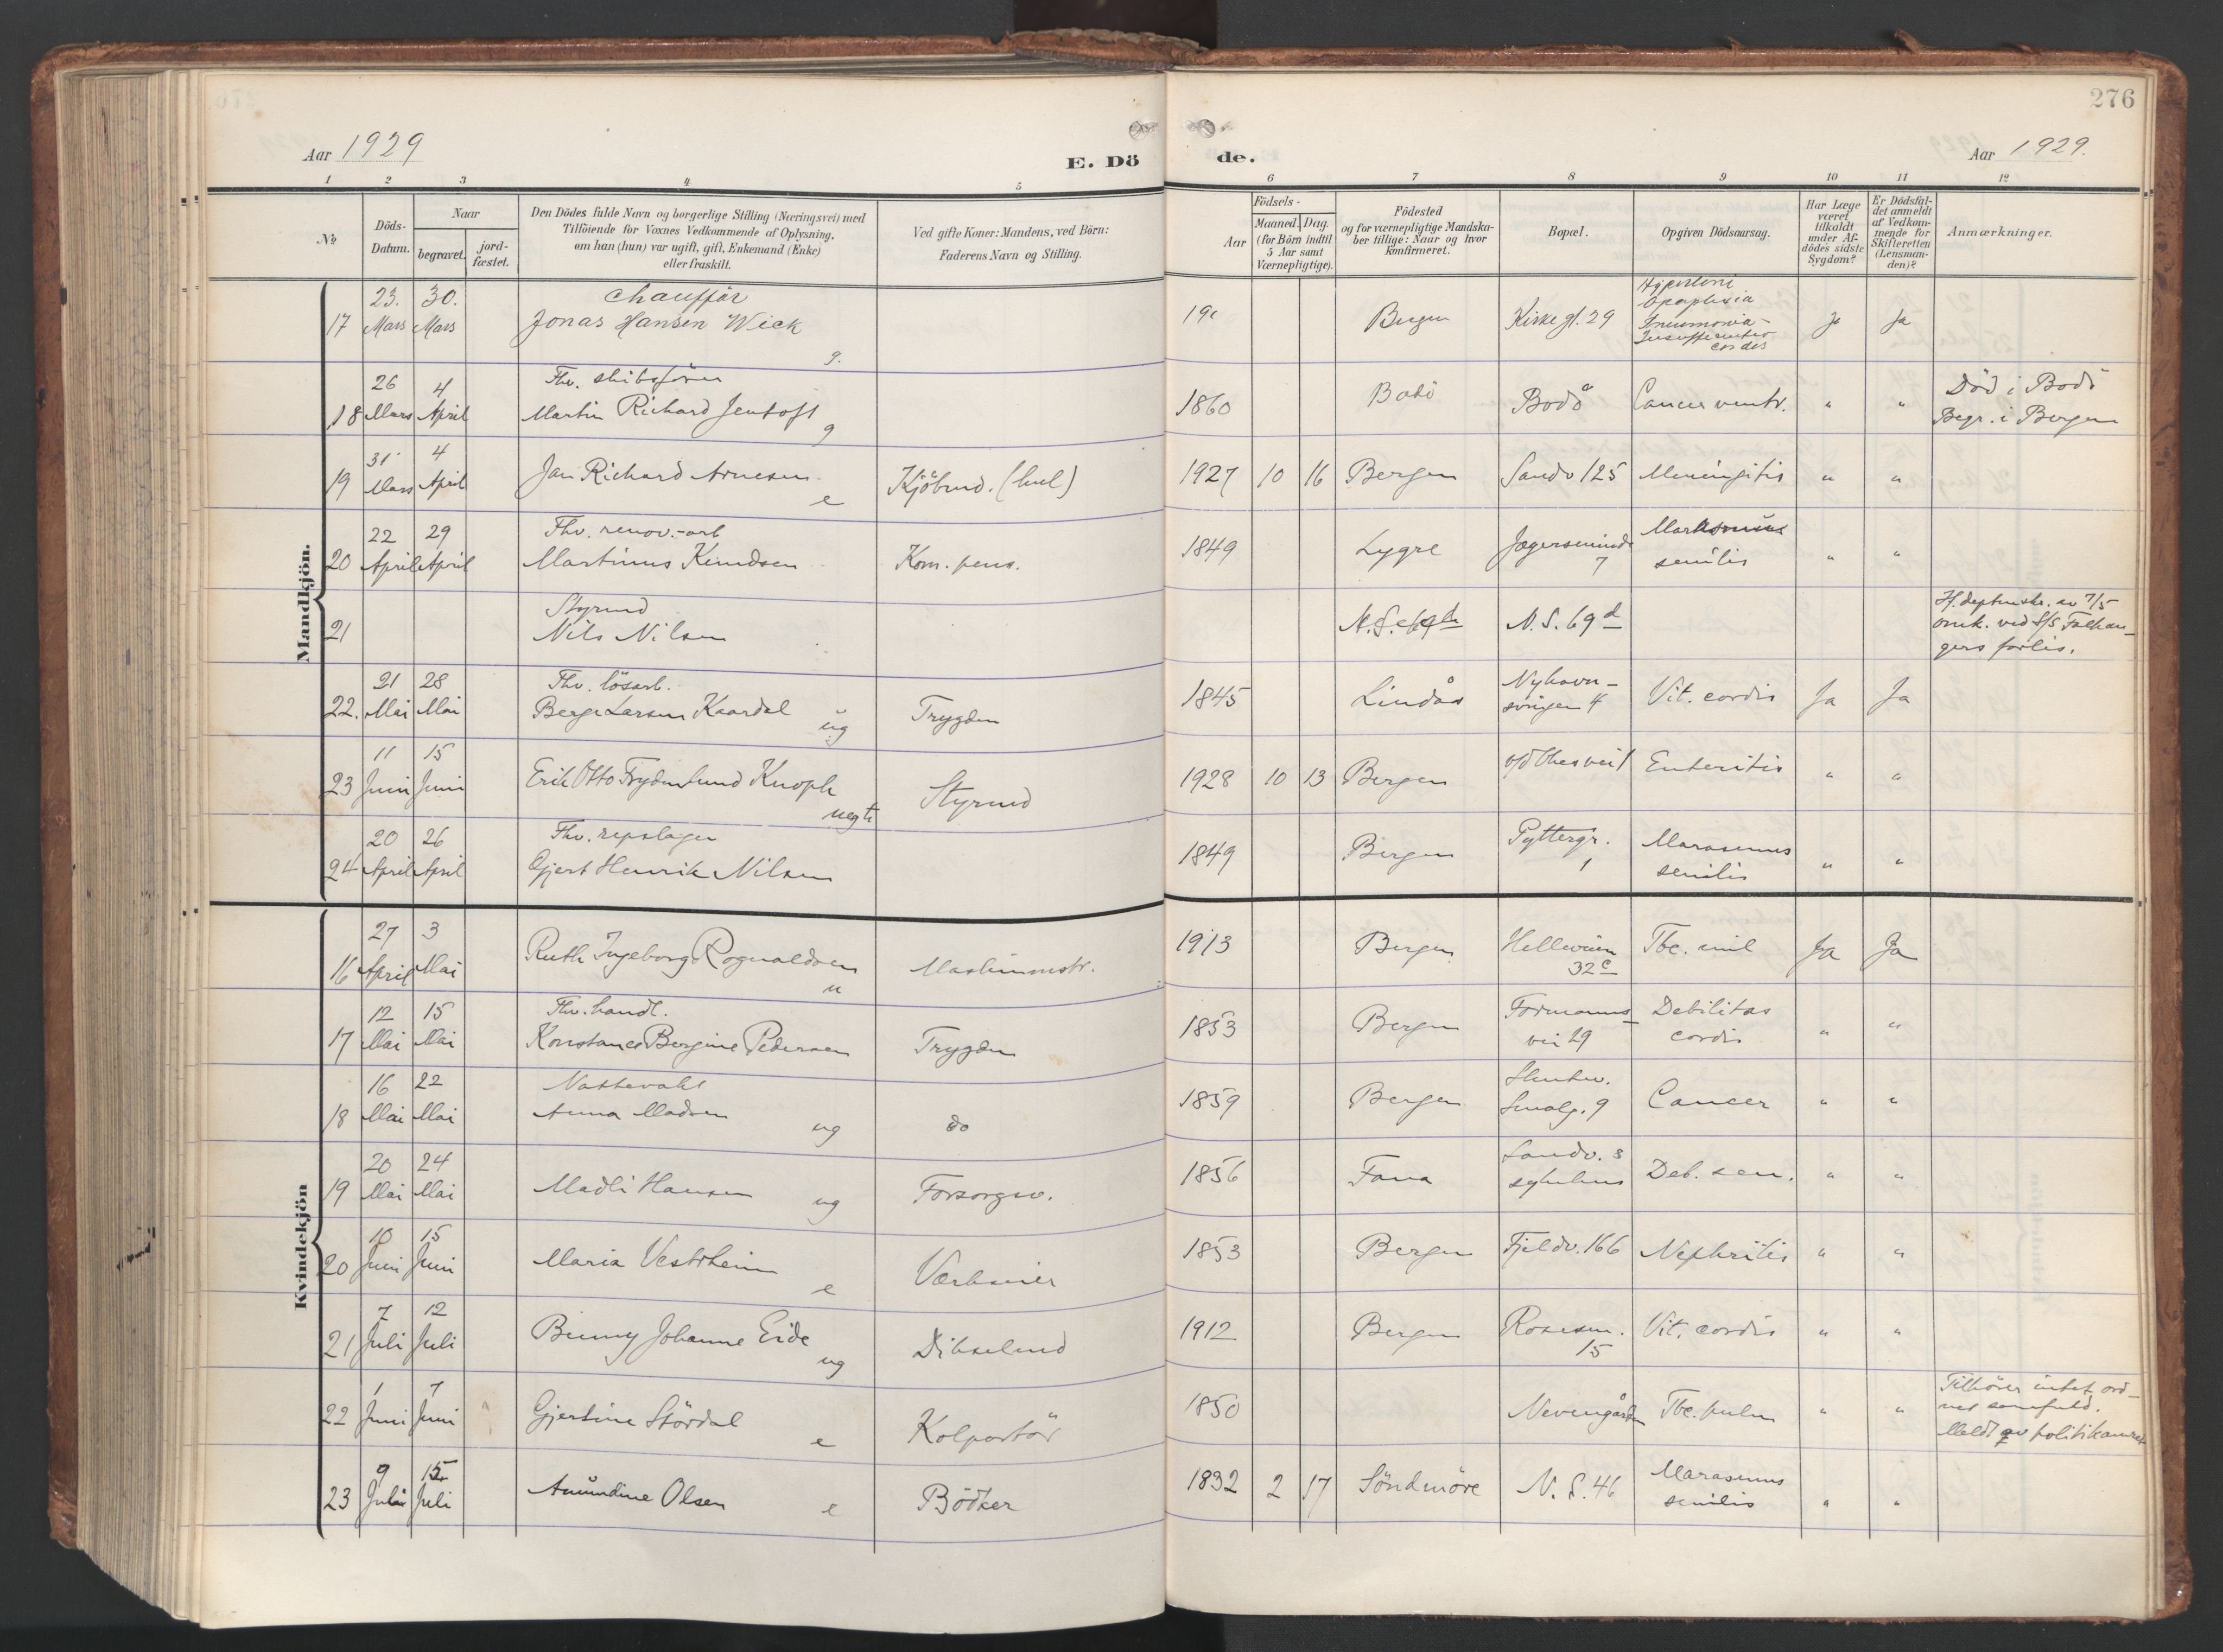 276
Aar 1929
E. Dö
de.
Aar 1929.
1 2 3 4 5 6 7 8 9 10 11 12
No
Döds-Datum.
Naar
begravet.
jord-fæstet.
Den Dödes fulde Navn og borgerlige Stilling (Næringsvei) med
Tilföiende for Voxnes Vedkommende af Oplysning,
om han (hun) var ugift, gift, Enkemand (Enke)
eller fraskilt.
Ved gifte Koner: Mandens, ved Börn:
Faderens Navn og Stilling.
Födsels-
Aar
Maaned. Dag.
(for Börn indtil
5 Aar samt
Værnepligtige).
Födested
og for værnepligtige Mandska-
ber tillige: Naar og hvor
konfirmeret.
Bopæl.
Opgiven Dödsaarsag.
Har Læge
været
tilkaldt
under Af-
dödes sidste
Sygdom?
Er Dödsfal-
det anmeldt
af Vedkom-
mende for
Skifteretten
(Lensman-
den)?
Anmærkninger.
Mandkjön.
17 23. Mars 30. Mars chauffør
Jonas Hansen Wick g. Bergen Kirkegt. 29 Hypertoni
Apoplexia
Pneumonia-
cordis Ja Ja
18 26 Mars 4 April Fhv. skibsförer
Martin Richard Jentoft g 1860 Bodö Bodö Cancer ventr. " " Död i Bodö
Begr. i Bergen
19 31 Mars 4 April Jan Richard Arnesen e Kjöbmd. 1927 10 16 Bergen Sandv 125 Meningitis " "
20 22 April 29 April Fhv. renov.-arb
Martinus Knudsen Kom. pens. 1849 Lygre 7 senilis " "
21 Styrmd
Nils Nilsen N.S. 69d av 7/5
omk. ved S/S
forlis.
22. 21 Mai 28 Mai Fhv. lösarb.
Berge Larsen Kaardal ug Trygden 1845 Lindås Nyhavn-
4 Vit. cordis Ja Ja
23 11 Juni 15 Juni Erik Otto Frydenlund Knoph uegte Styrmd 1928 10 13 Bergen Enteritis " "
24 20 April 26 April Fhv. repslager
Gjert Henrik Nilsen 1849 Bergen Pyttergr.
1 Marasmus
senilis " "
Kvindekjön
16 27 April 3 Mai Ruth Ingeborg Rognaldsen u Maskinmstr. 1913 Bergen Helleveien
32c Tbc. mil Ja Ja
17 12 Mai 15 Mai Fhv. handl.
Konstance Bergine Pedersen Trygden 1853 Bergen Formanns-
vei 29 Debilitas
cordis " "
18 16 Mai 22 Mai
Anna Madsen ug do 1859 Bergen 9 Cancer " "
19 20 Mai 24 Mai Madli Hansen ug Forsorgsv. 1856 Fana Sandv. s
sykehus Deb. sen. " "
20 10 Juni 15 Juni Maria Vestrheim e Værkeier 1853 Bergen Fjeldv. 166 Nephritis " "
21 7 Juli 12 Juli Johanne Eide ug Dikselmd 1912 Bergen Rosesm.
15 Vit. cordis " "
22 1 Juni 7 Juni Gjertine Stördal e Kolportör 1850 Nevengården Tbc. pulm " " Tilhörer intet ord-
net samfund.
Meldt av politikamret
23 9 Juli 15 Juli Amundine Olsen e Bödker 1832 2 17 Söndmöre N. S. 46 Marasmus
senilis " "